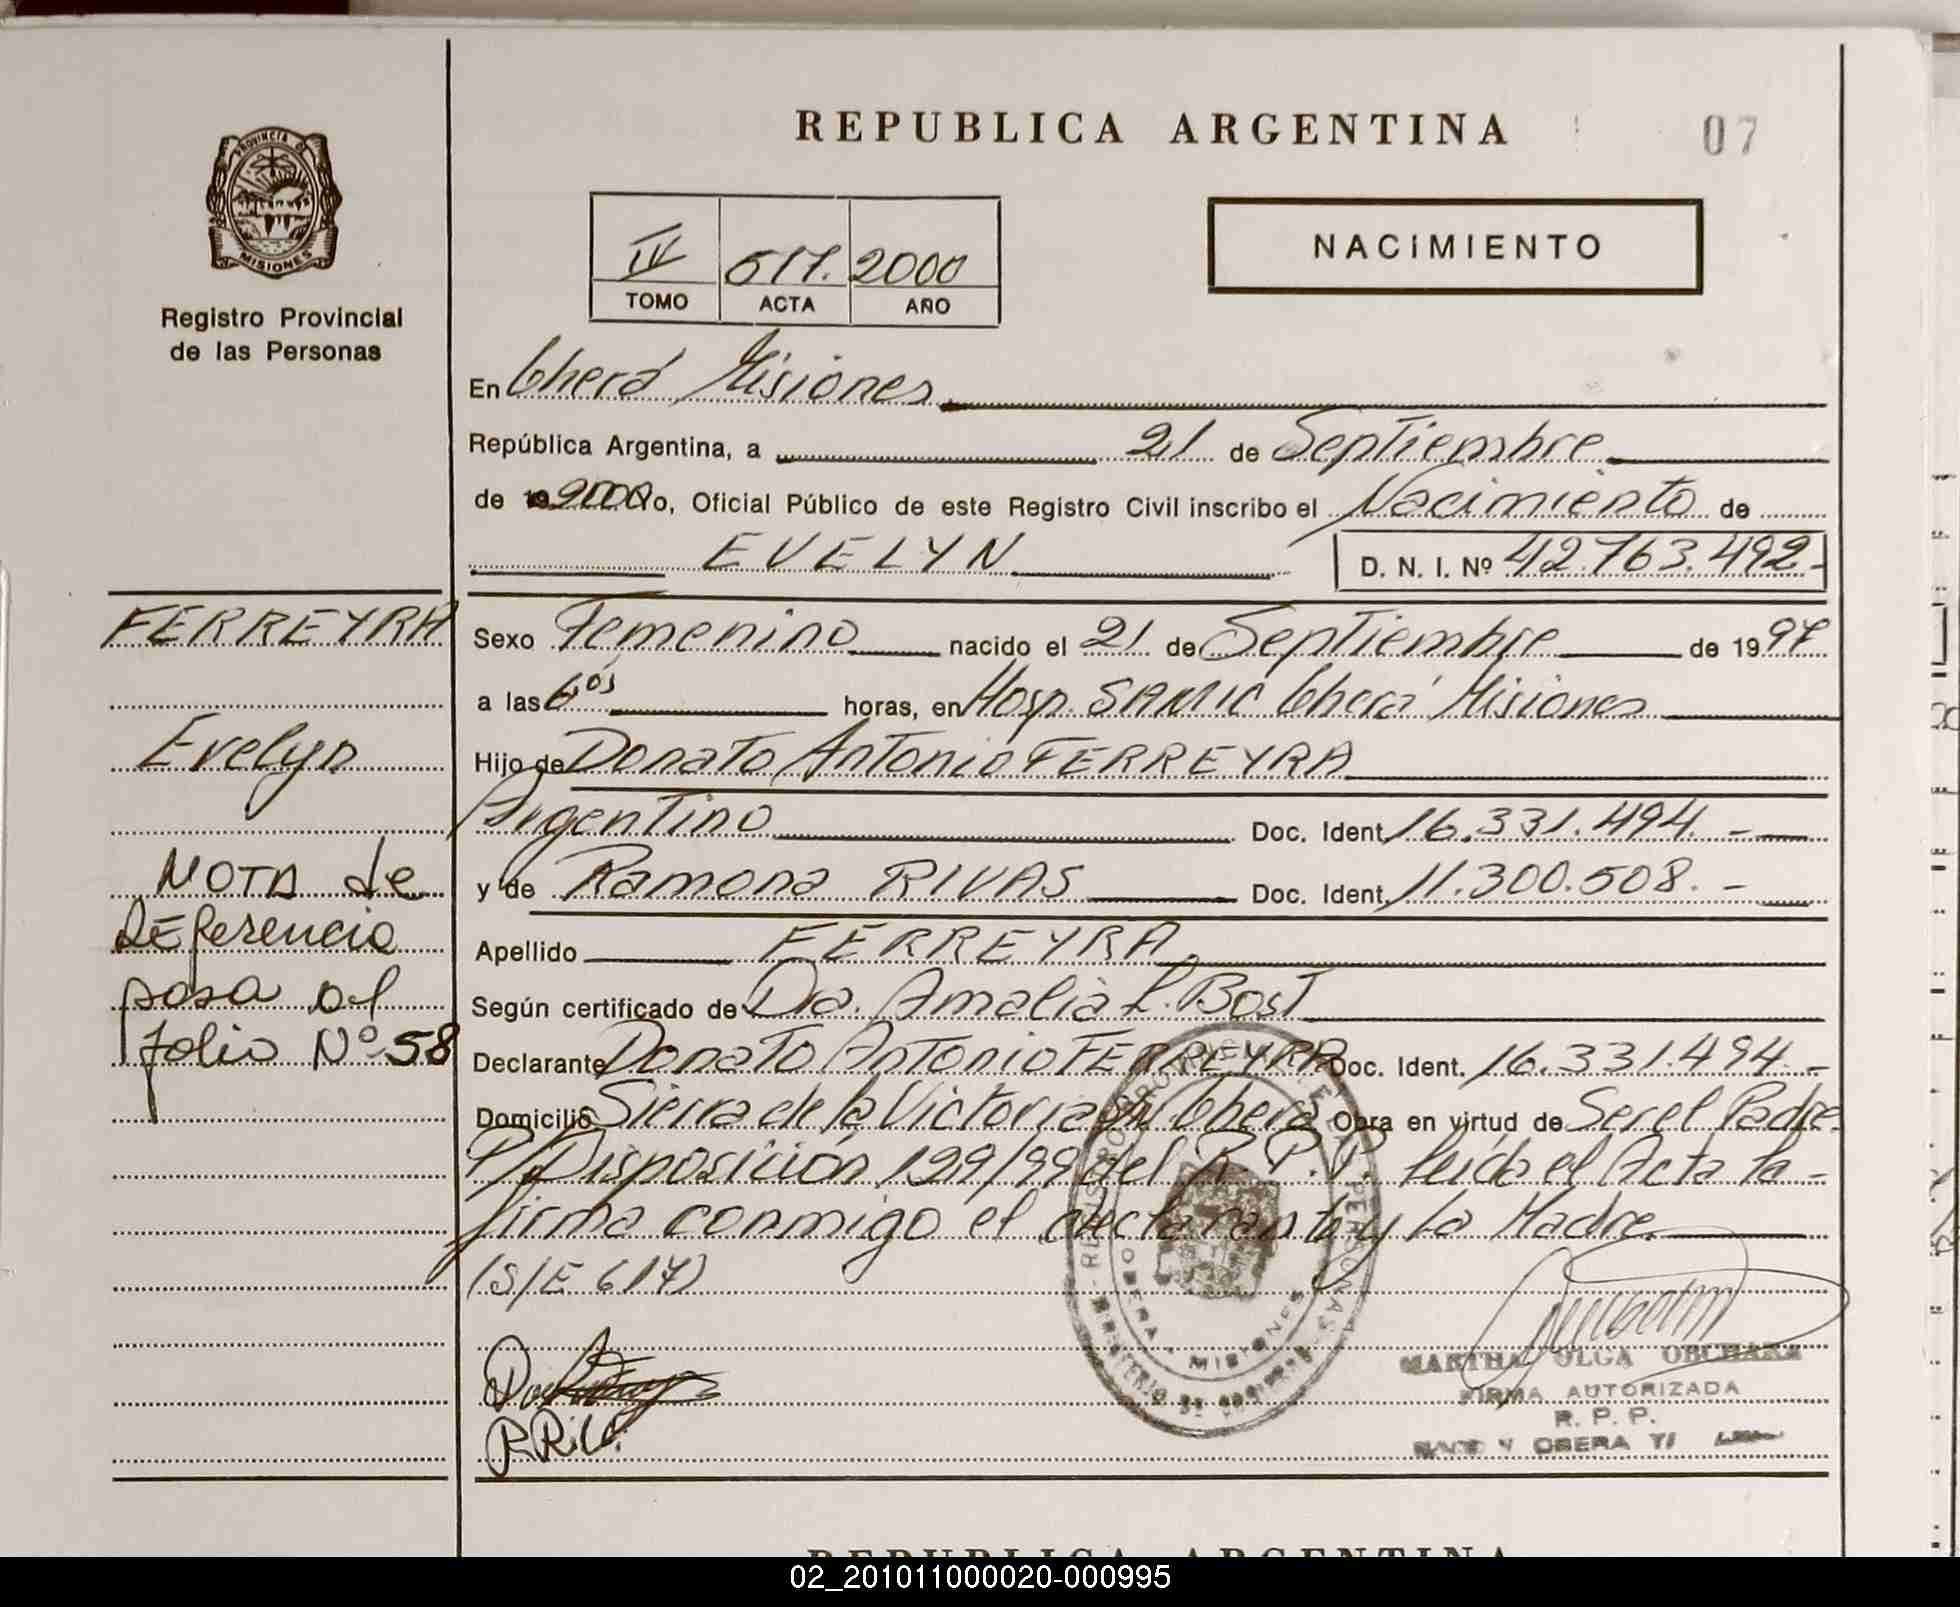 REPUBLICA ARGENTINA
07
PROVINCIA DE
MISIONES
Registro Provincial
de las Personas
IV 617. 2000
TOMO ACTA AÑO
NACIMIENTO
En Oberá Misiones
República Argentina, a 21 de Septiembre
de 19 2000 Yo, Oficial Público de este Registro Civil inscribo el Nacimiento de
EVELYN
D. N. I. Nº 42.763.492-
FERREYRA
Sexo Femenino nacido el 21 de Septiembre de 1997
a las 6 05 horas, en Hosp. SAMIC Oberá Misiones
Evelyn
Hijo de Donato Antonio FERREYRA
Argentino Doc. Ident. 16.331.494.-
NOTA de
REferencia
pasa al
folio Nº 58
y de Ramona RIVAS Doc. Ident. 11.300.508.-
Apellido FERREYRA
Según certificado de Da. Amalia L. Bost
Declarante Donato Antonio FERREYRA Doc. Ident. 16.331.494.-
Domicilio Sierra de la Victoria Oberá Obra en virtud de Ser el Padre
P/Disposición 199/99 del R.P.P. leida el Acta la-
firma conmigo el declarante y la Madre.
(S/E 617)
REGISTRO PROVINCIAL DE LAS PERSONAS
OBERA - MISIONES
R.Riv.
MARTHA OLGA
FIRMA AUTORIZADA
R. P. P.
OBERA
REPUBLICA ARGENTINA
02_201011000020-000995